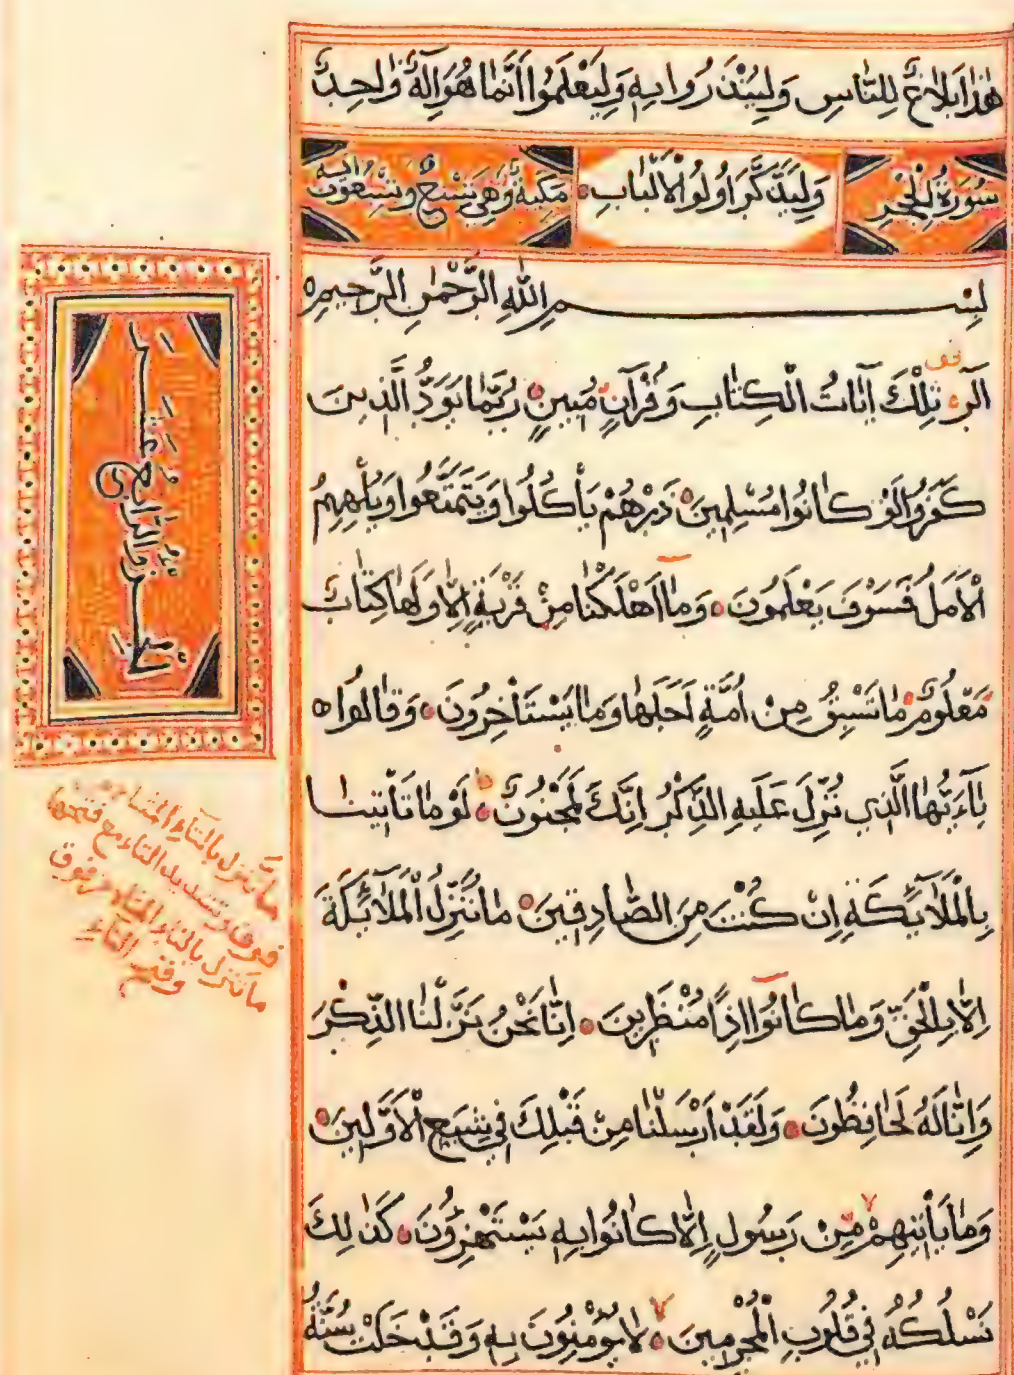 هٰذَا بَلَاغٌ لِلنَّاسِ وَلِيُنْذَرُوا بِهِ وَلِيَعْلَمُوا أَنَّمَا هُوَ إِلٰهٌ وَاحِدٌ
سُورَةُ الْحِجْرِ وَلِيَذَّكَّرَ أُولُو الْأَلْبَابِ مَكِّيَّةٌ وَهِيَ تِسْعٌ وَتِسْعُونَ اٰيَة
بِسْمِ اللّٰهِ الرَّحْمٰنِ الرَّحِيمِ
الٓرٰ تِلْكَ اٰيَاتُ الْكِتَابِ وَقُرْآنٍ مُبِينٍ رُبَمَا يَوَدُّ الَّذِينَ
كَفَرُوا لَوْ كَانُوا مُسْلِمِينَ ذَرْهُمْ يَأْكُلُوا وَيَتَمَتَّعُوا وَيُلْهِهِمُ
الْأَمَلُ فَسَوْفَ يَعْلَمُونَ وَمَا أَهْلَكْنَا مِنْ قَرْيَةٍ إِلَّا وَلَهَا كِتَابٌ
مَعْلُومٌ مَا تَسْبِقُ مِنْ أُمَّةٍ أَجَلَهَا وَمَا يَسْتَأْخِرُونَ وَقَالُوا
يَا أَيُّهَا الَّذِي نُزِّلَ عَلَيْهِ الذِّكْرُ إِنَّكَ لَمَجْنُونٌ لَوْ مَا تَأْتِينَا
بِالْمَلَائِكَةِ إِنْ كُنْتَ مِنَ الصَّادِقِينَ مَا نُنَزِّلُ الْمَلَائِكَةَ
إِلَّا بِالْحَقِّ وَمَا كَانُوا إِذًا مُنْظَرِينَ إِنَّا نَحْنُ نَزَّلْنَا الذِّكْرَ
وَإِنَّا لَهُ لَحَافِظُونَ وَلَقَدْ أَرْسَلْنَا مِنْ قَبْلِكَ فِي شِيَعِ الْأَوَّلِينَ
وَمَا يَأْتِيهِمْ مِنْ رَسُولٍ إِلَّا كَانُوا بِهِ يَسْتَهْزِؤُنَ كَذٰلِكَ
نَسْلُكُهُ فِي قُلُوبِ الْمُجْرِمِينَ لَا يُؤْمِنُونَ بِهِ وَقَدْ خَلَتْ سُنَّةُ
الْجُزْءُ الرَّابِعَ عَشَرَ
مَا تَنَزَّلُ بِالتَّاءِ الْمُثَنَّاة مِنْ
فوق وتشديد التاء مع فتحها
ما تنزل بالتاء المثناة من فوق
وفتح التاءِ